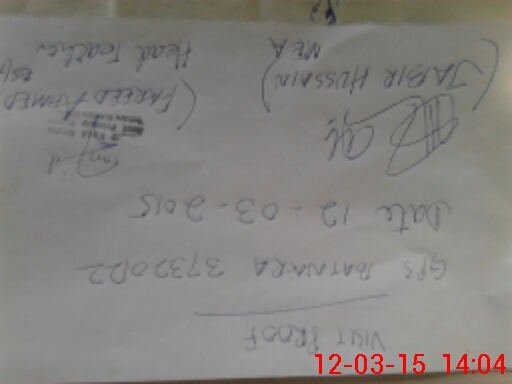 VISIT PROOF
GPS BATNARA 37320122
Date 12-03-2015
(JABIR HUSSAIN)
MEA
(FAREED AHMED
Head Teacher
12-03-15 14:04